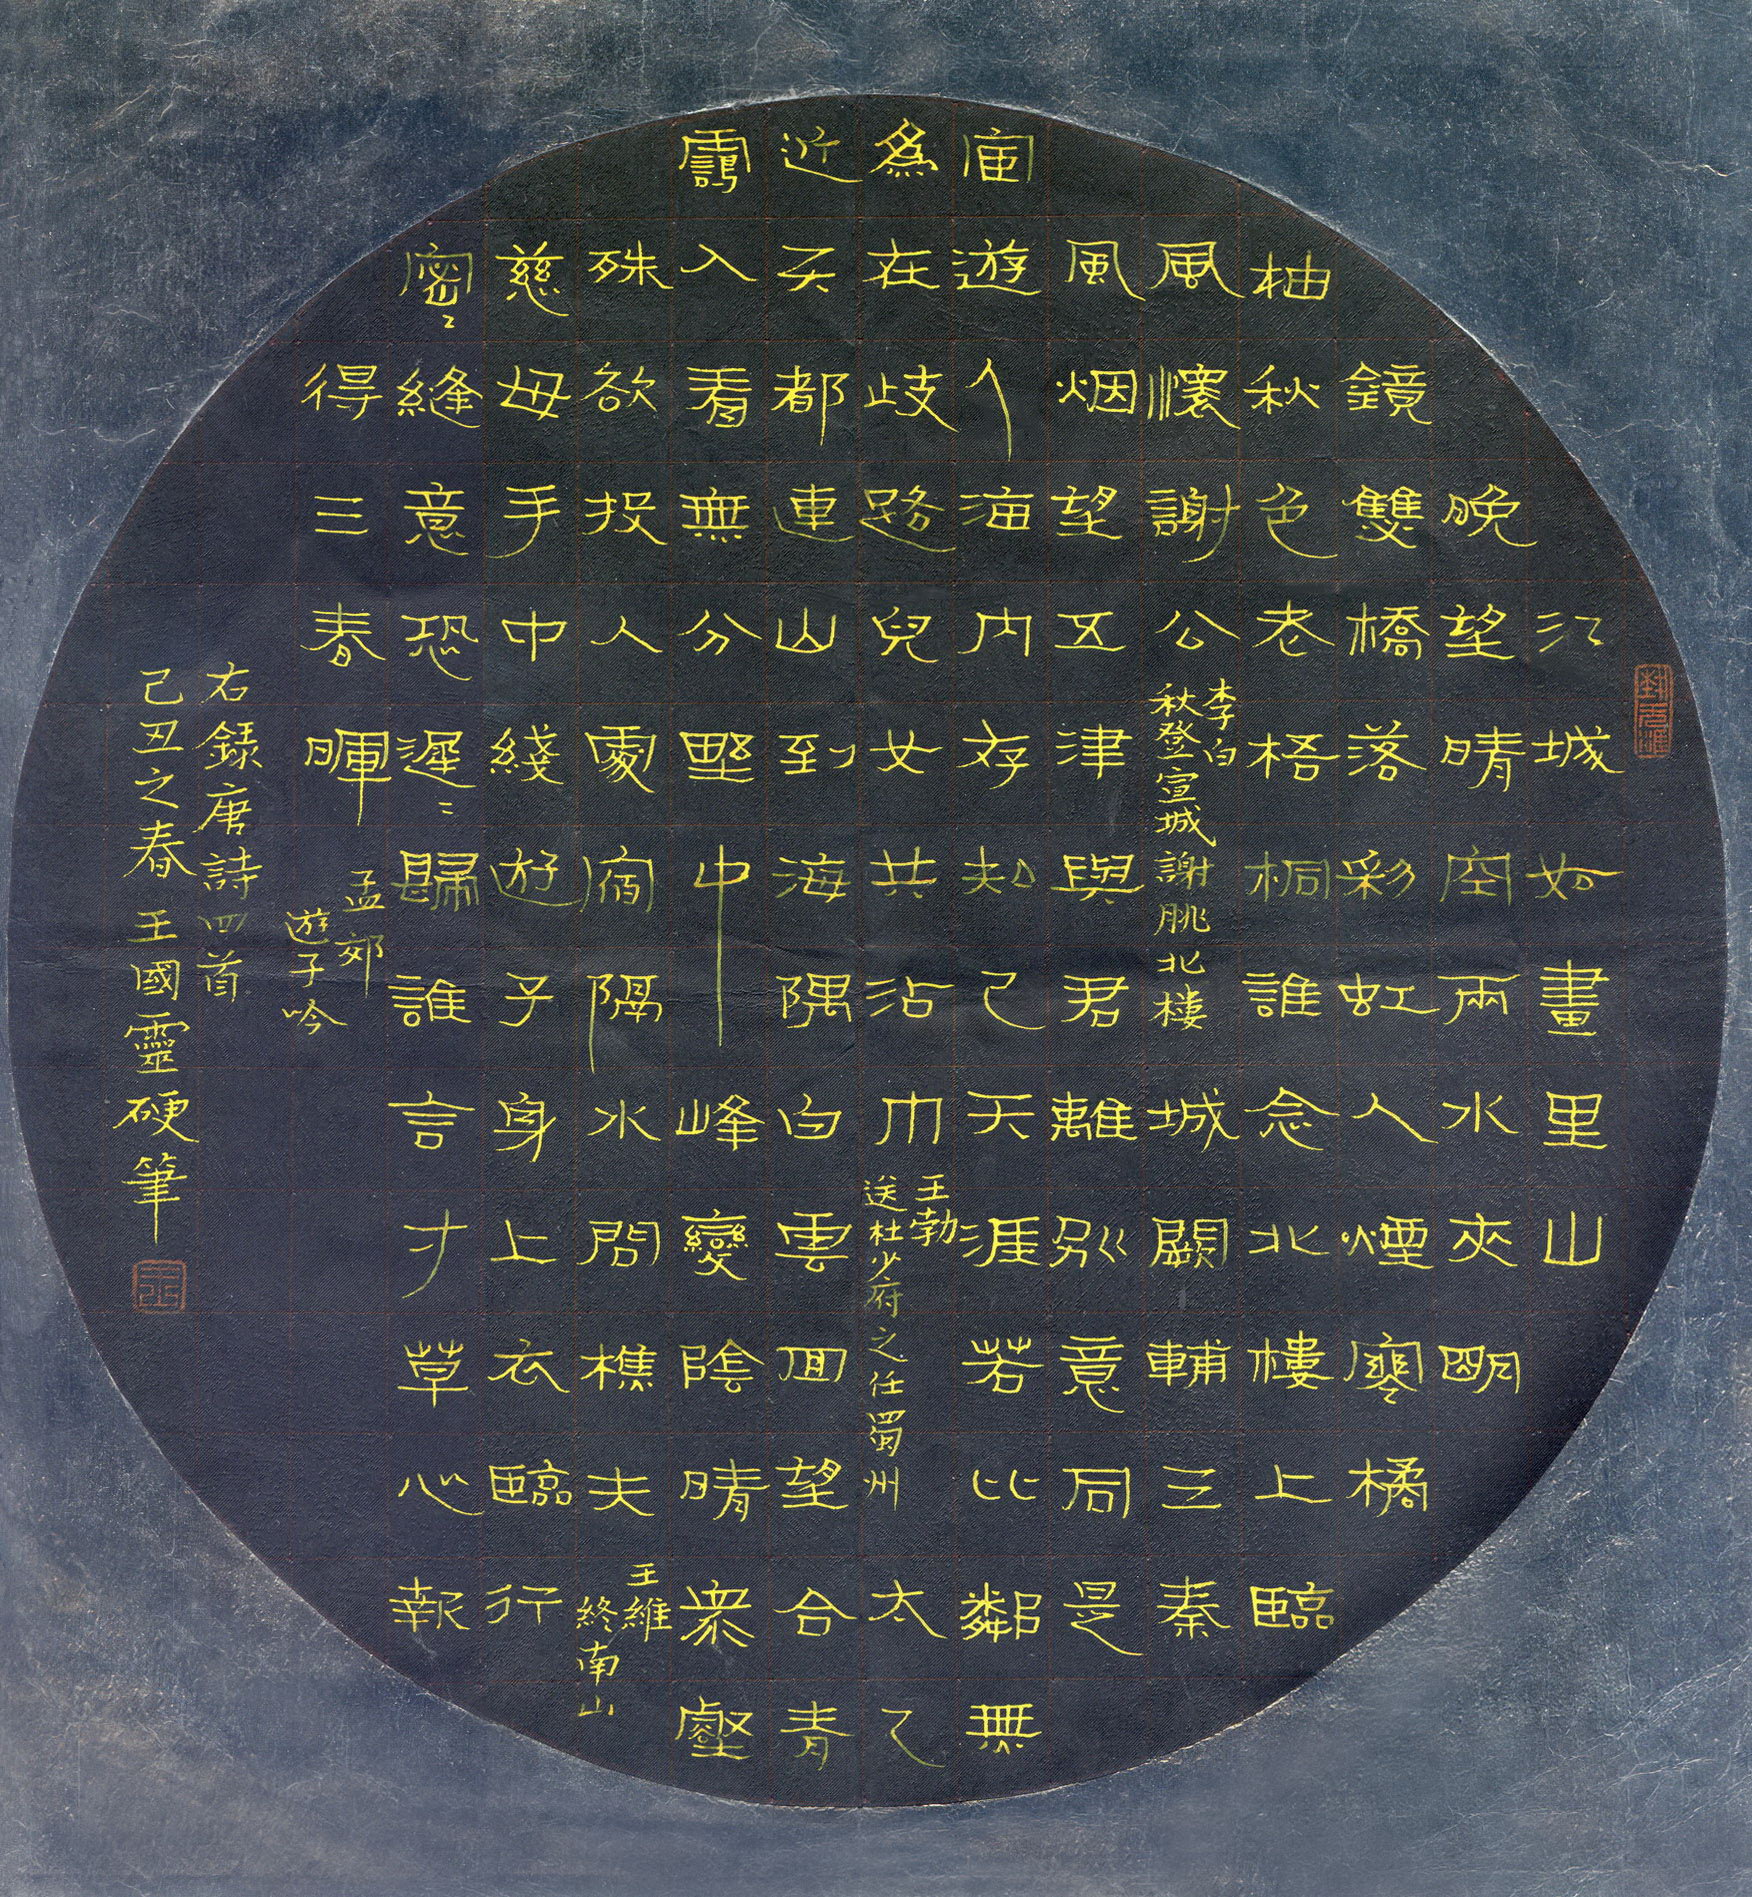 江城如畫里山
晚望晴空兩水夾明
鏡雙橋落彩虹人煙寒橘
柚秋色老梧桐誰念北樓上臨
風懷謝公
李白
秋登宣城謝脁北樓
城闕輔三秦
風烟望五津與君離別意同是
宦遊人海内存知己天涯若比鄰無
為在歧路兒女共沾巾
王勃
送杜少府之任蜀州
太乙
近天都連山到海隅白雲回望合青
靄入看無分野中峰變陰晴衆壑
殊欲投人處宿隔水問樵夫
王維
終南山
慈母手中綫遊子身上衣臨行
密〻縫意恐遲〻歸誰言寸草心報
得三春暉
孟郊
遊子吟
右錄唐詩四首
己丑之春王國靈硬筆